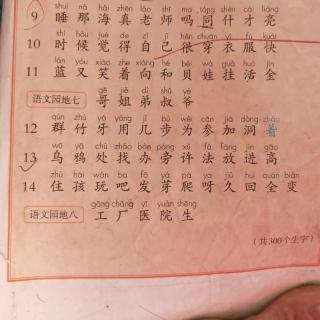 shuì nà hǎi zhēn lǎo shī ma tóng shén cái liàng
9 睡 那 海 真 老 师 吗 同 什 才 亮
shí hòu jué de zì jǐ hěn chuān yī fu kuài
10 时 候 觉 得 自 己 很 穿 衣 服 快
lán yòu xiào zhe xiàng hé bèi wá guà huó jīn
11 蓝 又 笑 着 向 和 贝 娃 挂 活 金
gē jiě dì shū yé
语文园地七 哥 姐 弟 叔 爷
qún zhú yá yòng jǐ bù wéi cān jiā dòng zháo
12 群 竹 牙 用 几 步 为 参 加 洞 着
wū yā chù zhǎo bàn páng xǔ fǎ fàng jìn gāo
13 乌 鸦 处 找 办 旁 许 法 放 进 高
zhù hái wán ba fā yá pá ya jiǔ huí quán biàn
14 住 孩 玩 吧 发 芽 爬 呀 久 回 全 变
gōng chǎng yī yuàn shēng
语文园地八 工 厂 医 院 生
(共300个生字)